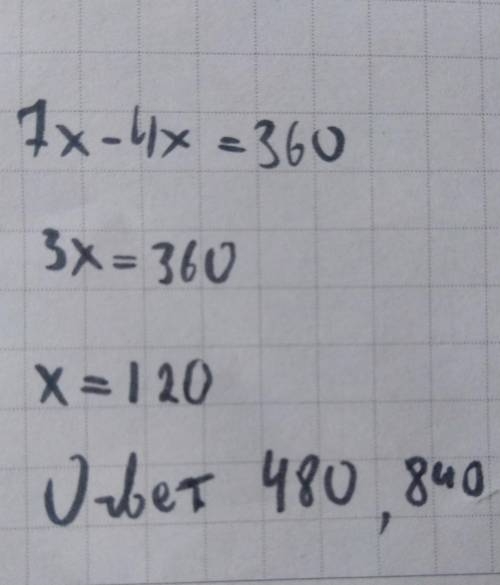 7x - 4x = 360
3x = 360
x = 120
Ответ 480, 840